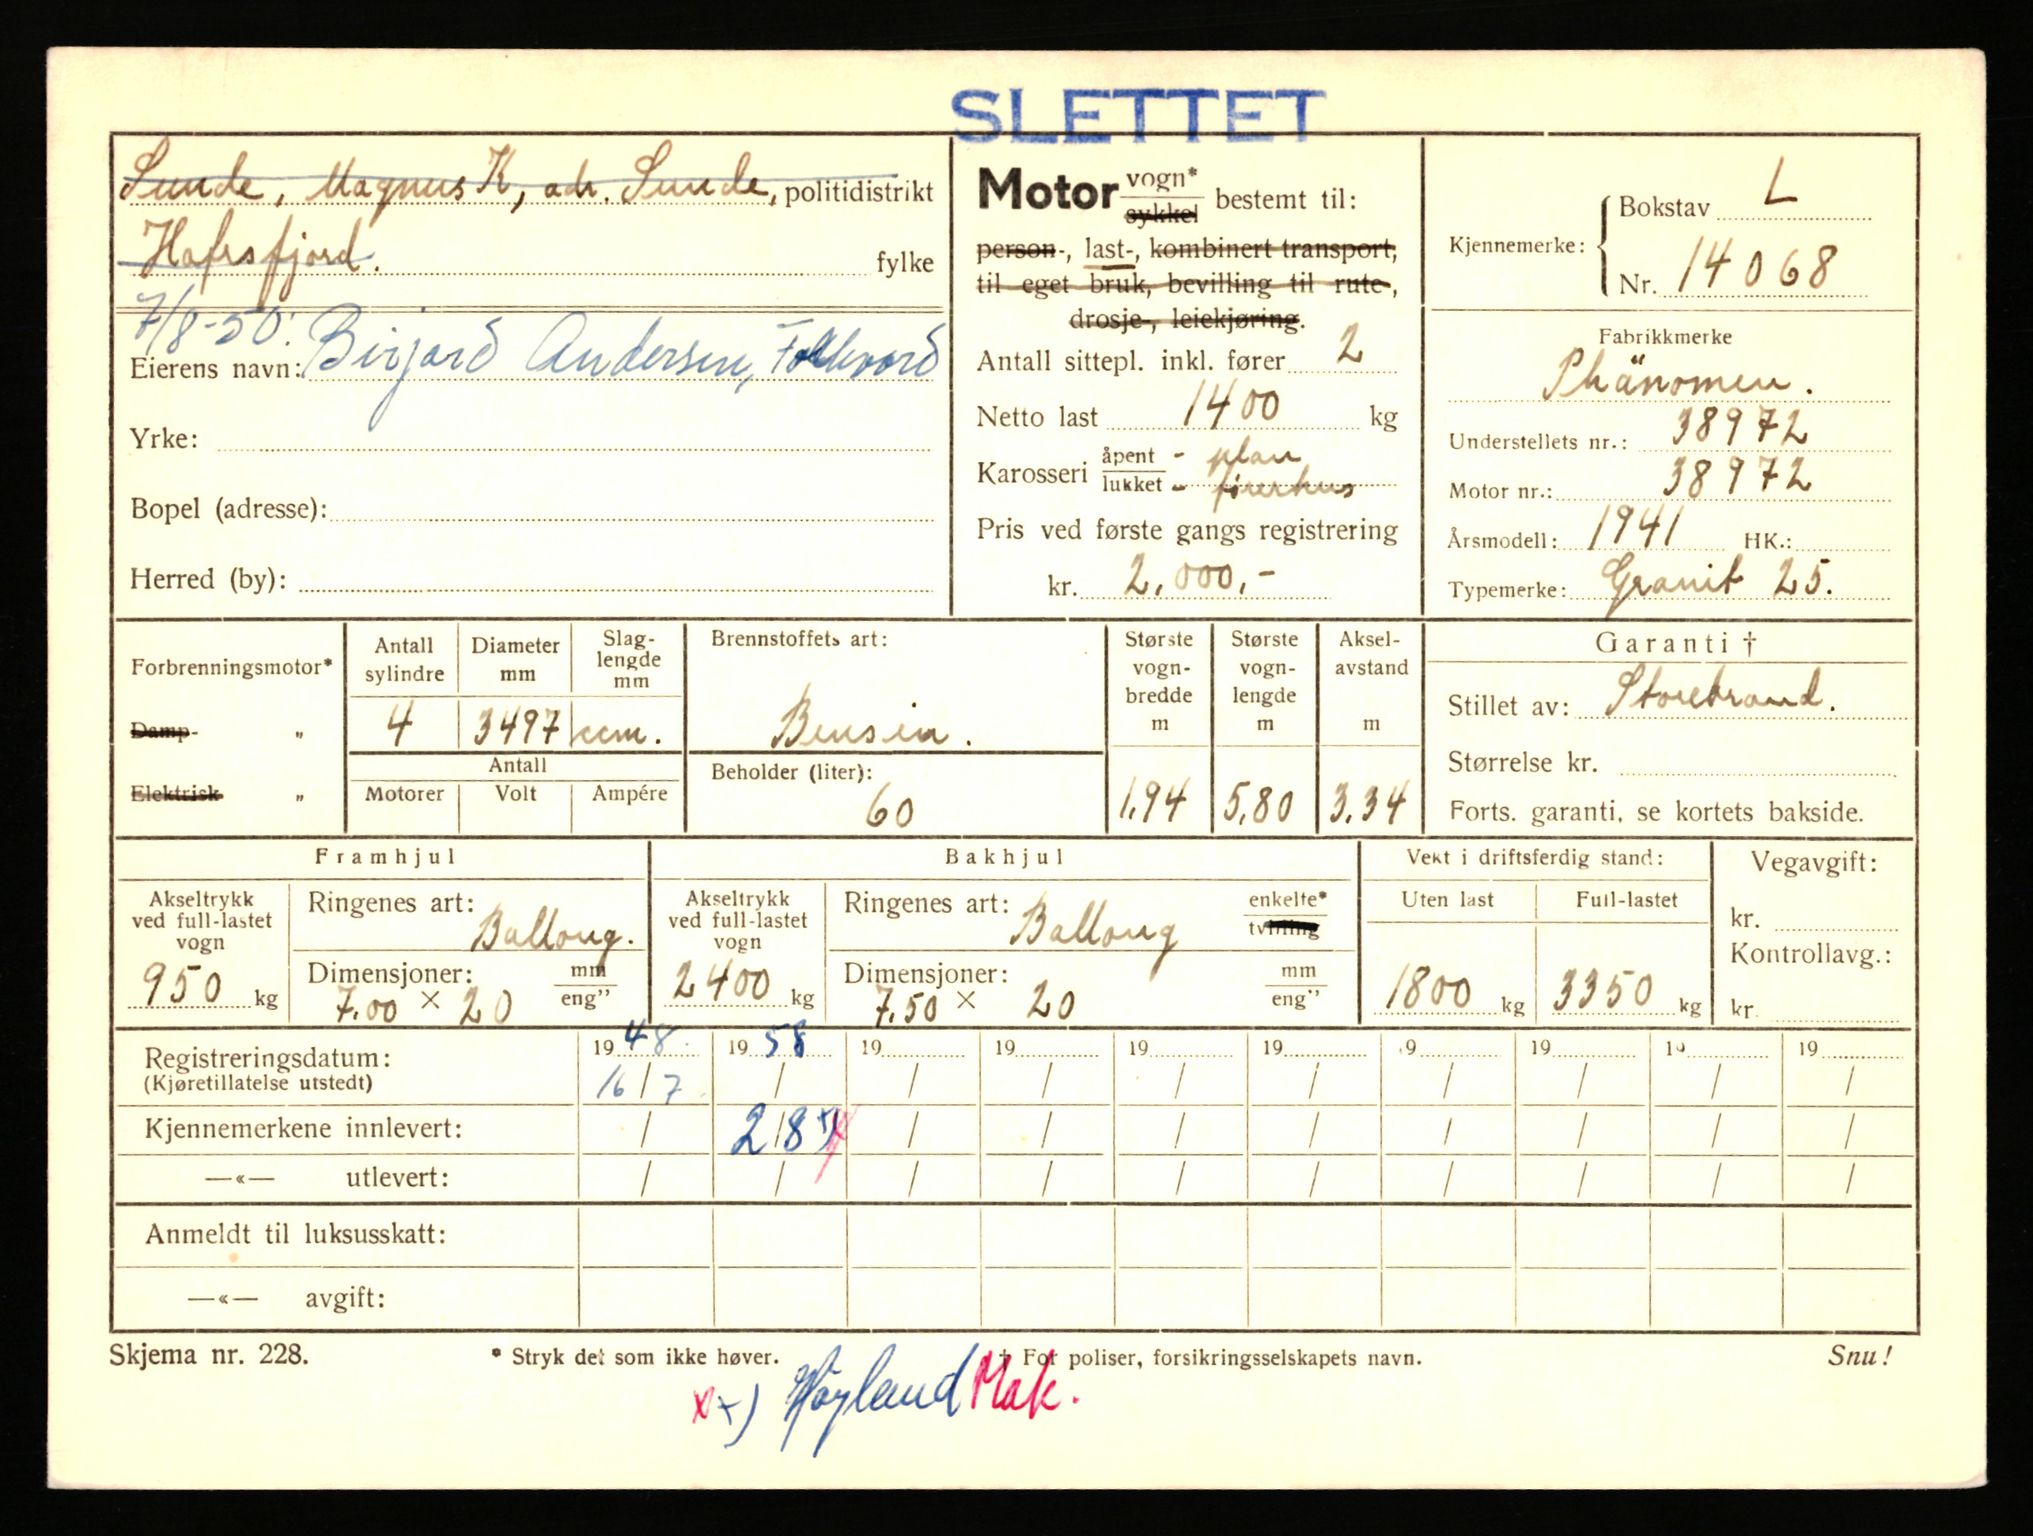 SLETTET
Sunde, Magnus K, adr. Sunde, politidistrikt
Hafrsfjord. fylke
7/8-50.
Eierens navn: Birjard Andersen, Folkvord
Yrke:
Bopel (adresse):
Herred (by):
Motor vogn* sykkel bestemt til:
person-, last-, kombinert transport,
til eget bruk, bevilling til rute-,
drosje-, leiekjøring.
Antall sittepl. inkl. fører 2
Netto last 1400 kg
Karosseri åpent - plan
lukket - førerhus
Pris ved første gangs registrering
kr. 2.000,-
Kjennemerke: Bokstav L
Nr. 14068
Fabrikkmerke
Phänomen.
Understellets nr.: 38972
Motor nr.: 38972
Årsmodell: 1941 HK.:
Typemerke: Granit 25.
Forbrenningsmotor*
Damp- "
Elektrisk "
Antall sylindre Diameter mm Slag-lengde mm
4 3497 ccm.
Antall
Motorer Volt Ampére
Brennstoffets art:
Bensin.
Beholder (liter):
60
Største vogn-bredde m Største vogn-lengde m Aksel-avstand m
1,94 5,80 3,34
Garanti †
Stillet av: Storebrand.
Størrelse kr.
Forts. garanti, se kortets bakside.
Framhjul
Akseltrykk ved full-lastet vogn
950 kg
Ringenes art: Ballong.
Dimensjoner: mm eng"
7.00 × 20
Bakhjul
Akseltrykk ved full-lastet vogn
2400 kg
Ringenes art: Ballong enkelte* tvilling
Dimensjoner: mm eng"
7.50 × 20
Vekt i driftsferdig stand:
Uten last Full-lastet
1800 kg 3350 kg
Vegavgift:
kr.
Kontrollavg.:
kr.
Registreringsdatum: 1948 1958 19 19 19 19 19 19 19 19
(Kjøretillatelse utstedt) 16/7 / / / / / / / / /
Kjennemerkene innlevert: / 2/8 x) / / / / / / / /
—«— utlevert: / / / / / / / / / /
Anmeldt til luksusskatt:
—«— avgift:
Skjema nr. 228. * Stryk det som ikke høver. † For poliser, forsikringsselskapets navn. Snu!
x x) Høyland Mak.